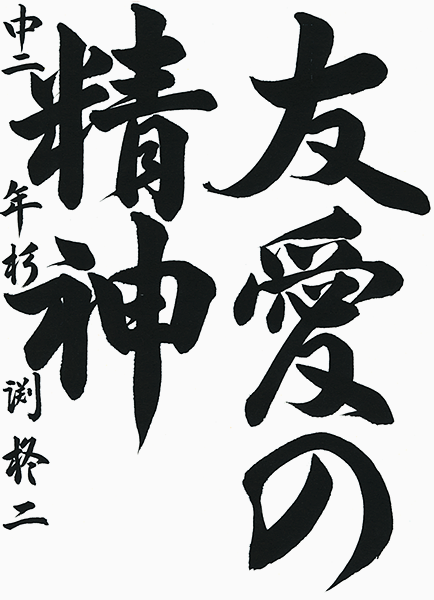 友愛の
精神
中二 年 杉渕柊二